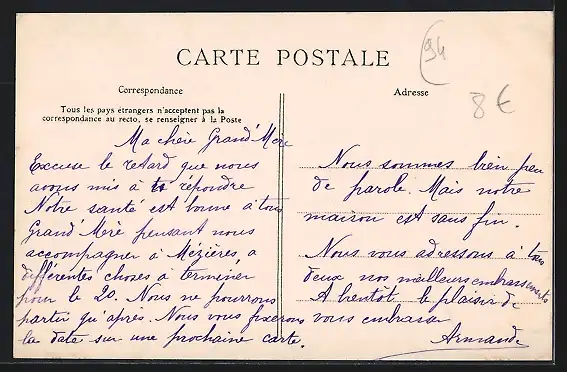 CARTE POSTALE
94
8€
Correspondance
Tous les pays étrangers n'acceptent pas la
correspondance au recto, se renseigner à la Poste
Ma chère Grand'Mère
Excuse le retard que nous
avons mis à te répondre
Notre santé est bonne à tous
Grand'Mère pensant nous
accompagner à Mézières, a
différentes choses à terminer
pour le 20. Nous ne pourrons
partir qu'après. Nous vous fixerons
la date sur une prochaine carte.
Adresse
Nous sommes bien peu
de parole. Mais notre
maison est sans fin.
Nous vous adressons à tous
deux nos meilleurs embrassements
A bientôt le plaisir de
vous embrasser
Armande